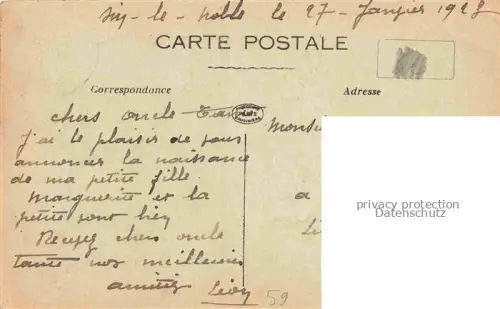 Sin-le-noble le 27-Janvier 1928
CARTE POSTALE
Correspondance
Adresse
chers oncle Tante
J'ai le plaisir de vous
annoncer la naissance
de ma petite fille
Marguerite et la
petite sont bien
Recevez chers oncle
tante nos meilleures
amitiés
Léon
59
Monsi
a
Li
privacy protection
Datenschutz